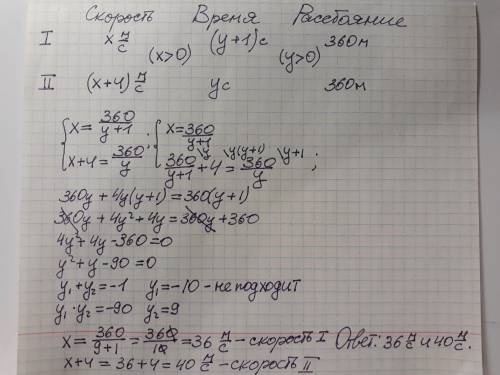 Скорость Время Расстояние
I x м/с (y+1)с 360м
(x>0) (y>0)
II (x+4) м/с yс 360м
{x = 360/(y+1) ; {x = 360/(y+1)
{x+4 = 360/y {360/(y+1) \y + 4 \y(y+1) = 360/y \y+1 ;
360y + 4y(y+1) = 360(y+1)
360y + 4y² + 4y = 360y + 360
4y² + 4y - 360 = 0
y² + y - 90 = 0
y₁ + y₂ = -1 y₁ = -10 - не подходит
y₁ · y₂ = -90 y₂ = 9
x = 360/(9+1) = 360/10 = 36 м/с - скорость I Ответ: 36 м/с и 40 м/с.
x+4 = 36+4 = 40 м/с - скорость II